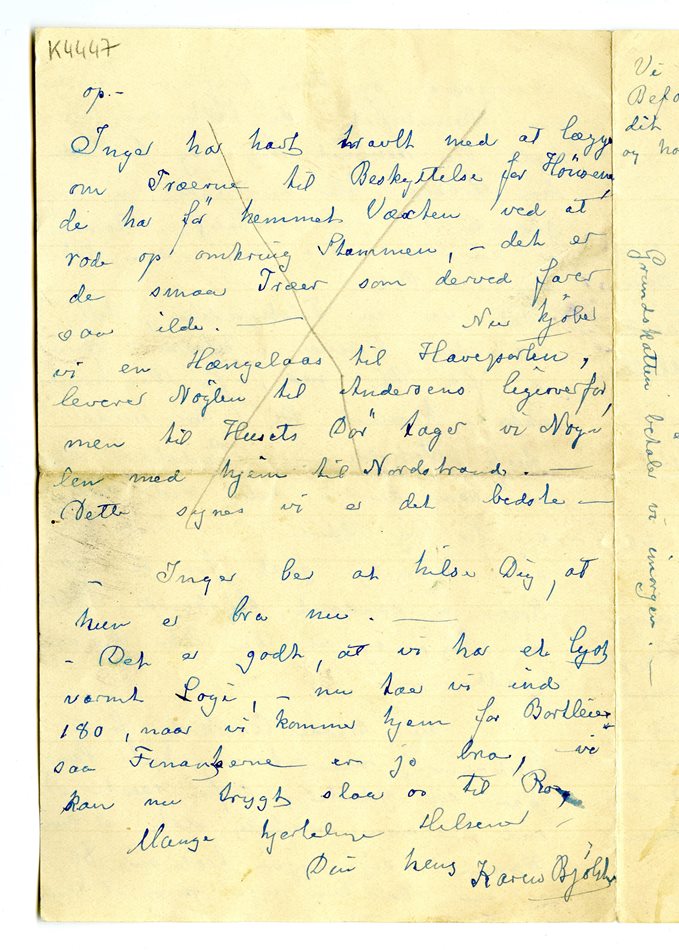 K4447
op.-
Inger har havt travlt med at lægge
om Træerne til Beskyttelse for Hönsene,
de har för hemmet Væxten ved at
rode op omkring Stammen, - det er
de smaa Træer som derved farer
saa ilde. — Nu kjöber
vi en Hængelaas til Haveporten,
leverer Nöglen til Andersens ligeoverfor,
men til Husets Dör tager vi Nög-
len med hjem til Nordstrand. —
Dette synes vi er det bedste —
- Inger ber at hilse Dig, at
hun er bra nu. —
- Det er godt, at vi har et lyst
varmt Logi, - nu tar vi ind
180, naar vi kommer hjem for Bortleie,
saa Finanserne er jo bra, - vi
kan nu trygt slaa os til Ro,
Mange hjertelige Hilsener
Din hens Karen
Vi
dit
og
Grundskatten betaler vi imorgen. —